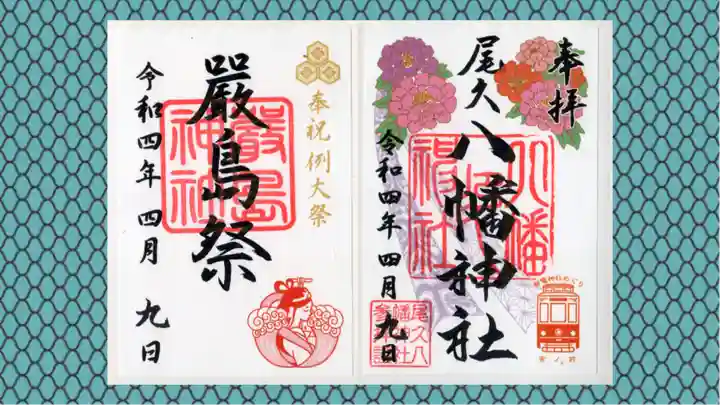 奉拝
尾久八幡神社
八幡神社
令和四年四月九日
尾久八幡神社参拝
奉祝例大祭
嚴島祭
嚴島神社
令和四年四月九日